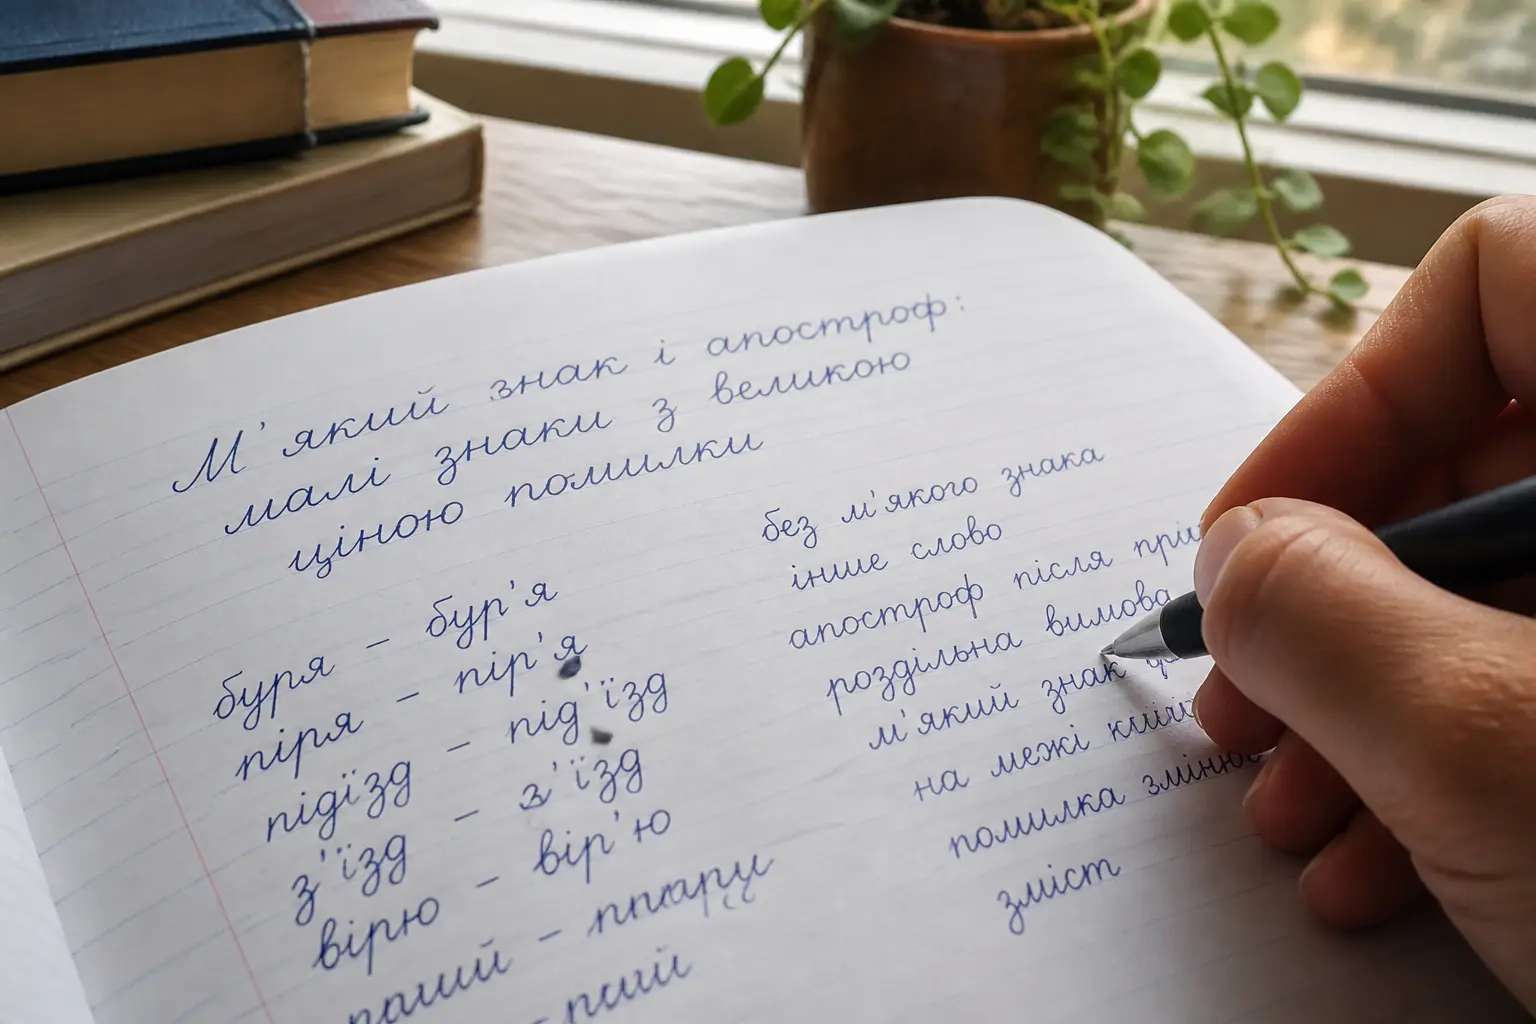 М'який знак і апостроф:
малі знаки з великою
ціною помилки
буря – бур'я
піря – пір'я
підїзд – під'їзд
з'їзд – з'їзд
вірю – вір'ю
без м'якого знака
інше слово
апостроф після
роздільна вимова
м'який знак
на межі
помилка
зміст